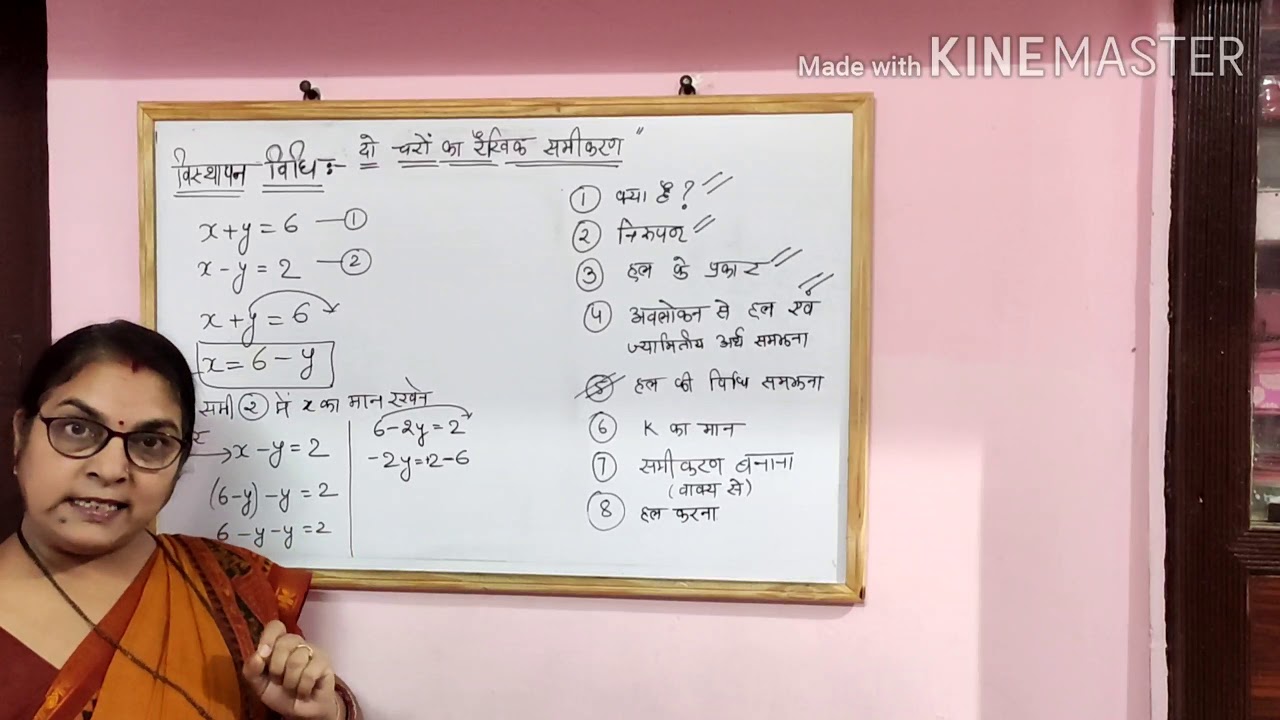 Made with KINEMASTER
दो चरों का रैखिक समीकरण"
विस्थापन विधि :-
x+y=6 —①
x-y=2 —②
x+y=6
x=6-y
समी ② में x का मान रखने
x-y=2
(6-y)-y=2
6-y-y=2
6-2y=2
-2y=2-6
① क्या है?
② निरूपण
③ हल के प्रकार
④ अवलोकन से हल एवं
ज्यामितीय अर्थ समझना
⑤ हल की विधि समझना
⑥ K का मान
⑦ समीकरण बनाना
(वाक्य से)
⑧ हल करना